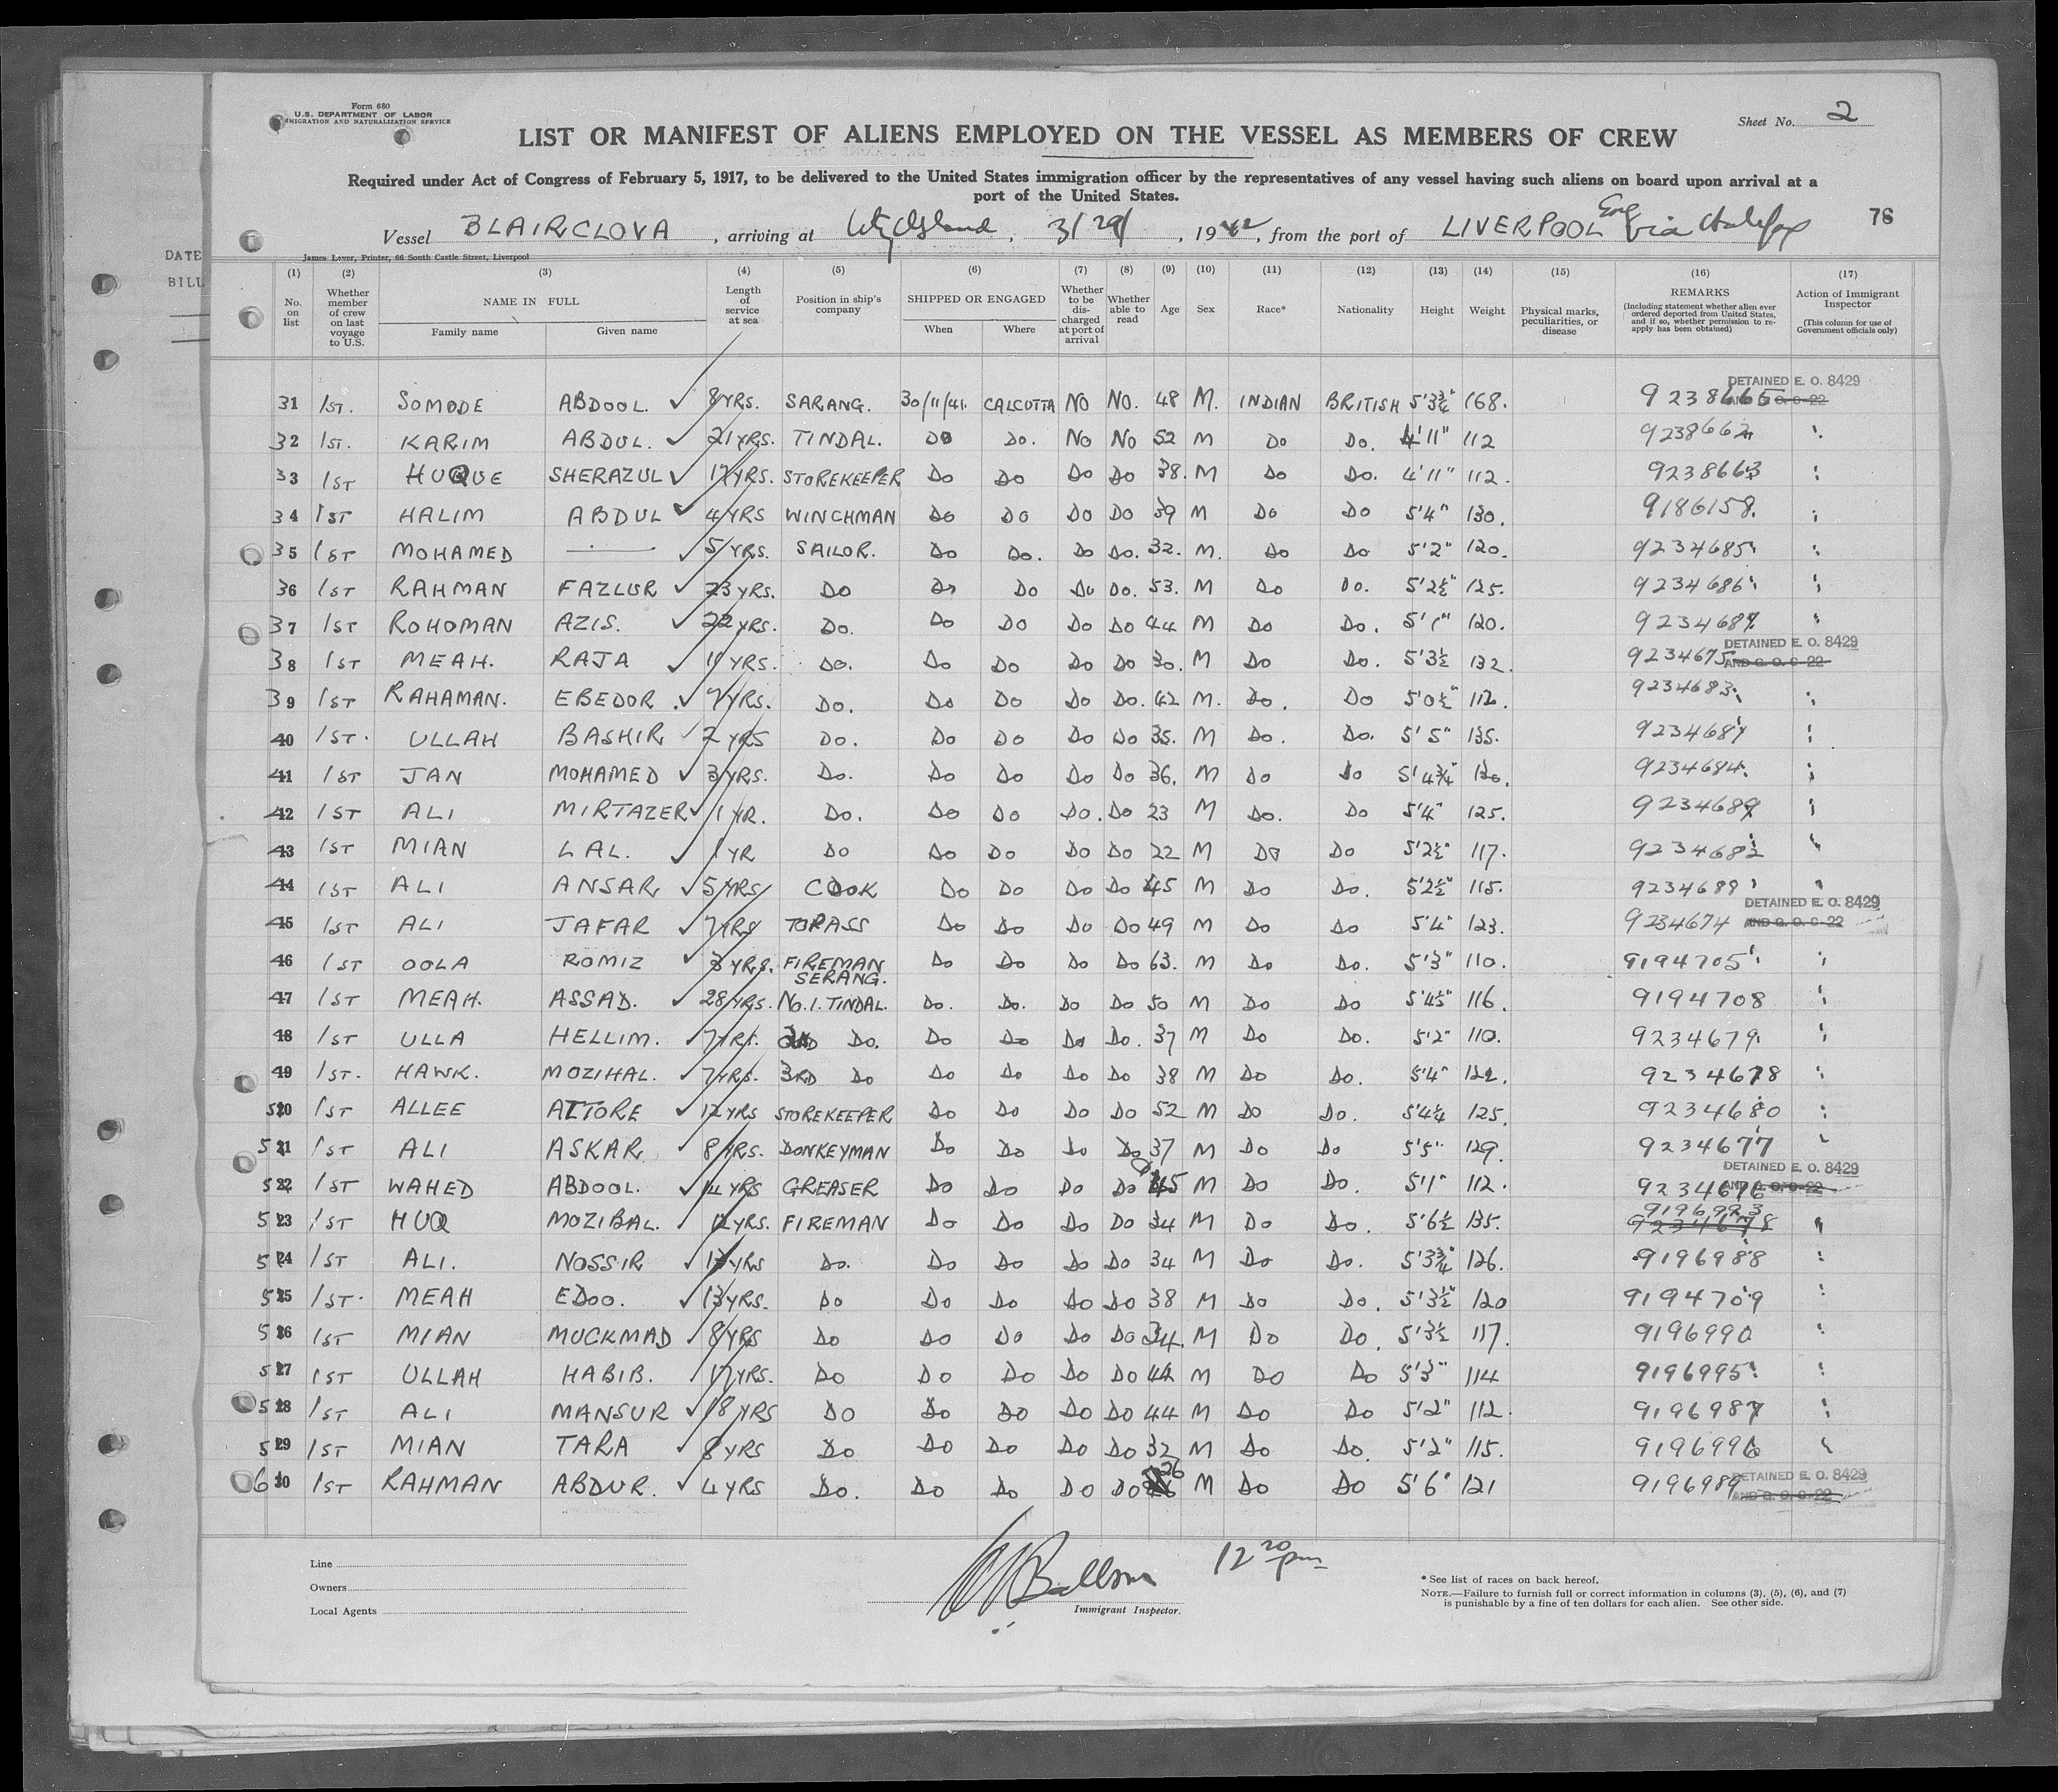 Form 680
U.S. DEPARTMENT OF LABOR
IMMIGRATION AND NATURALIZATION SERVICE
Sheet No. 2
LIST OR MANIFEST OF ALIENS EMPLOYED ON THE VESSEL AS MEMBERS OF CREW
Required under Act of Congress of February 5, 1917, to be delivered to the United States immigration officer by the representatives of any vessel having such aliens on board upon arrival at a
port of the United States.
76
Vessel BLAIRCLOVA, arriving at 3/29/, 1942, from the port of LIVERPOOL Eng via Halifax
James Lever, Printer, 66 South Castle Street, Liverpool
DATE
BILL
(1) (2) (3) (4) (5) (6) (7) (8) (9) (10) (11) (12) (13) (14) (15) (16) (17)
No. on list
Whether member of crew on last voyage to U.S.
NAME IN FULL
Family name Given name
Length of service at sea
Position in ship's company
SHIPPED OR ENGAGED
When Where
Whether to be discharged at port of arrival
Whether able to read
Age Sex Race* Nationality Height Weight
Physical marks, peculiarities, or disease
REMARKS
(Including statement whether alien ever ordered deported from United States, and if so, whether permission to reapply has been obtained)
Action of Immigrant Inspector
(This column for use of Government officials only)
DETAINED E. O. 8429
31 1ST. SOMODE ABDOOL. ✓ 8 YRS. SARANG. 30/11/41. CALCUTTA NO NO. 48 M. INDIAN BRITISH 5'3¾" 168. 9238665 AND G. O. C-22
32 1ST. KARIM ABDUL. ✓ 21 YRS. TINDAL. DO DO. NO NO 52 M DO DO. 4'11" 112 9238662 "
33 1ST HUQUE SHERAZUL ✓ 17 YRS. STOREKEEPER DO DO DO DO 38. M DO DO. 4'11" 112. 9238663 "
34 1ST HALIM ABDUL ✓ 4 YRS WINCHMAN DO DO DO DO 39 M DO DO 5'4" 130. 9186158. "
35 1ST MOHAMED — ✓ 5 YRS. SAILOR. DO DO. DO DO. 32. M. DO DO 5'2" 120. 9234685 "
36 1ST RAHMAN FAZLUR ✓ 23 YRS. DO DO DO DO DO. 53. M DO DO. 5'2½" 125. 9234686 "
37 1ST ROHOMAN AZIS. ✓ 22 YRS. DO. DO DO DO DO 44 M DO DO. 5'1" 120. 9234687
DETAINED E. O. 8429
38 1ST MEAH. RAJA ✓ 11 YRS. DO. DO DO DO DO 30. M DO DO. 5'3½ 132. 9234675 AND G. O. C-22
39 1ST RAHAMAN. EBEDOR. ✓ 7 YRS. DO. DO DO DO DO. 42 M. DO. DO 5'0½" 112. 9234683. "
40 1ST. ULLAH BASHIR ✓ 2 YRS DO. DO DO DO DO 35. M DO. DO. 5'5" 135. "
41 1ST JAN MOHAMED ✓ 3 YRS. DO. DO DO DO DO 36. M DO DO 5'4¾" 130. 9234684. "
42 1ST ALI MIRTAZER ✓ 1 YR. DO. DO DO DO. DO 23 M DO. DO 5'4" 125. 9234689 "
43 1ST MIAN LAL. ✓ 1 YR DO DO DO DO DO 22 M DO DO 5'2½" 117. 9234682 "
44 1ST ALI ANSAR ✓ 5 YRS COOK DO DO DO DO 45 M DO DO. 5'2½" 115. "
DETAINED E. O. 8429
45 1ST ALI JAFAR ✓ 7 YRS TOPASS DO DO DO DO 49 M DO DO 5'4" 123. 9234674 AND G. O. C-22
46 1ST OOLA ROMIZ ✓ 3 YRS. FIREMAN SERANG. DO DO DO DO 63. M DO DO. 5'3" 110. 9194705 "
47 1ST MEAH. ASSAD. ✓ 28 YRS. No.1. TINDAL. DO. DO. DO DO 50 M DO DO 5'4½" 116. 9194708 "
48 1ST ULLA HELLIM. ✓ 7 YRS. 2ND DO. DO DO DO DO. 37 M DO DO. 5'2" 110. 9234679. "
49 1ST. HAWK. MOZIHAL. ✓ 7 YRS. 3RD DO DO DO DO DO 38 M DO DO. 5'4" 122. 9234678 "
50 1ST ALLEE ATTORE ✓ 12 YRS STOREKEEPER DO DO DO DO 52 M DO DO. 5'4¼ 125. 9234680 "
51 1ST ALI ASKAR ✓ 8 YRS. DONKEYMAN DO DO DO DO 37 M DO DO 5'5" 129. 9234677 "
DETAINED E. O. 8429
52 1ST WAHED ABDOOL. ✓ 14 YRS GREASER DO DO DO DO 45 M DO DO. 5'1" 112. 9234676 AND G. O. C-22
53 1ST HUQ MOZIBAL. ✓ 12 YRS. FIREMAN DO DO DO DO 34 M DO DO. 5'6½ 135. 9196993 92346778 "
54 1ST ALI. NOSSIR ✓ 17 YRS DO. DO DO DO DO 34 M DO DO. 5'3¾" 126. 9196988 "
55 1ST. MEAH EDOO. ✓ 13 YRS. DO DO DO DO DO 38 M DO DO. 5'3½" 120 9194709 "
56 1ST MIAN MUCKMAD ✓ 8 YRS DO DO DO DO DO 34. M DO DO. 5'3½ 117. 9196990 "
57 1ST ULLAH HABIB. ✓ 17 YRS. DO DO DO DO DO 44 M DO DO 5'3" 114 9196995 "
58 1ST ALI MANSUR ✓ 18 YRS DO DO DO DO DO 44 M DO DO 5'2" 112. 9196987 "
59 1ST MIAN TARA ✓ 8 YRS DO DO DO DO DO 32 M DO DO. 5'2" 115. 9196996 "
60 1ST RAHMAN ABDUR. ✓ 4 YRS DO. DO DO DO DO 26 M DO DO 5'6" 121 9196989 DETAINED E. O. 8429
AND G. O. C-22
12 20 pm
Line
Owners
Local Agents
Immigrant Inspector.
* See list of races on back hereof.
NOTE.—Failure to furnish full or correct information in columns (3), (5), (6), and (7)
is punishable by a fine of ten dollars for each alien. See other side.